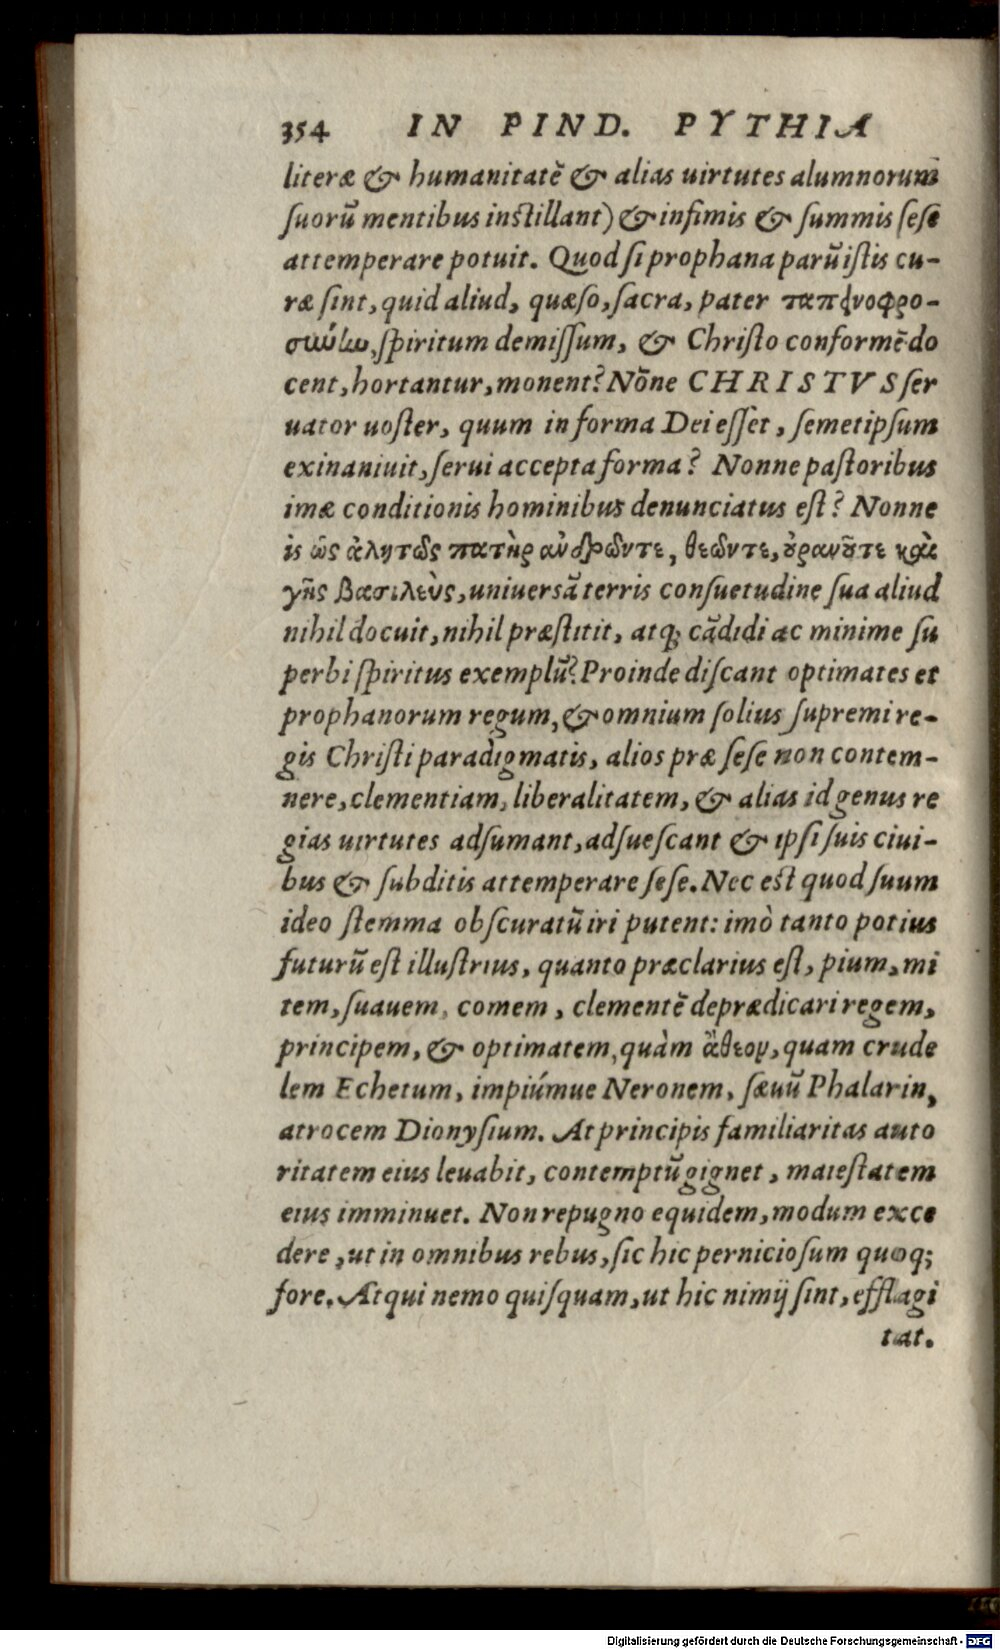 354 IN PIND. PYTHIA
literæ & humanitatē & alias uirtutes alumnorum
ſuorū mentibus inſtillant) & infimis & ſummis ſeſe
attemperare potuit. Quod ſi prophana parū iſtis cu-
ræ ſint, quid aliud, quæſo, ſacra, pater
ſpiritum demiſſum, & Chriſto conformē do
cent, hortantur, monent? Nōne CHRISTVS ſer
uator uoſter, quum in forma Dei eſſet, ſemetipſum
exinaniuit, ſerui accepta forma? Nonne paſtoribus
imæ conditionis hominibus denunciatus eſt? Nonne
is ὡς ἀλητῶς πατὴρ ἀνδρῶντε, θεῶντε, οὐρανοῦτε καὶ
γῆς βασιλεὺς, uniuersā terris conſuetudine ſua aliud
nihil docuit, nihil præſtitit, atq; cādidi ac minime ſu
perbi ſpiritus exemplū? Proinde diſcant optimates et
prophanorum regum, & omnium ſolius ſupremi re-
gis Chriſti paradigmatis, alios præ ſeſe non contem-
nere, clementiam, liberalitatem, & alias id genus re
gias uirtutes adſumant, adſueſcant & ipſi ſuis ciui-
bus & ſubditis attemperare ſeſe. Nec eſt quod ſuum
ideo ſtemma obſcuratū iri putent: imò tanto potius
futurū eſt illuſtrius, quanto præclarius eſt, pium, mi
tem, ſuauem, comem, clementē deprædicari regem,
principem, & optimatem, quàm ἄθεον, quam crude
lem Echetum, impiúmue Neronem, ſæuū Phalarin,
atrocem Dionyſium. At principis familiaritas auto
ritatem eius leuabit, contemptū gignet, maieſtatem
eius imminuet. Non repugno equidem, modum exce
dere, ut in omnibus rebus, ſic hic pernicioſum quoq;
fore. Atqui nemo quiſquam, ut hic nimij ſint, efflagi
tat.
Digitalisierung gefördert durch die Deutsche Forschungsgemeinschaft - DFG